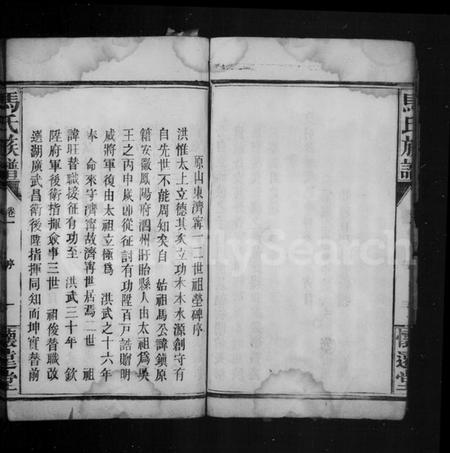 馬氏族譜
卷一
序
一
懷遠堂
原山東濟寧一二世祖塋碑序
洪惟太上立德其次立功木本水源創守有
自先世不能周知矣自 始祖馬公諱鎮原
籍安徽鳳陽府泗州盱眙縣人由太祖為吳
王之丙申歲從征討有功陞百戶誥贈明
威將軍復由太祖立極為 洪武之十六年
奉 命來守濟寧故濟寧世居焉二世 祖
諱旺替職接征有功至 洪武三十年 欽
陞府軍後衛指揮僉事三世 祖俊替職改
選湖廣武昌衛後陞指揮同知而坤寶替前
馬氏族譜
懷遠堂
FamilySearch